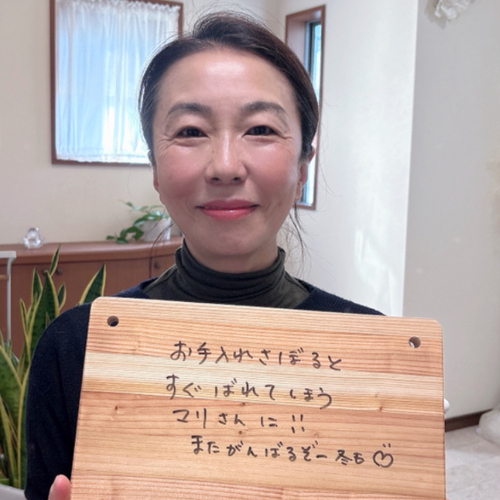 お手入れさぼると
すぐばれてしまう
マリさんに!!
またがんばるぞー